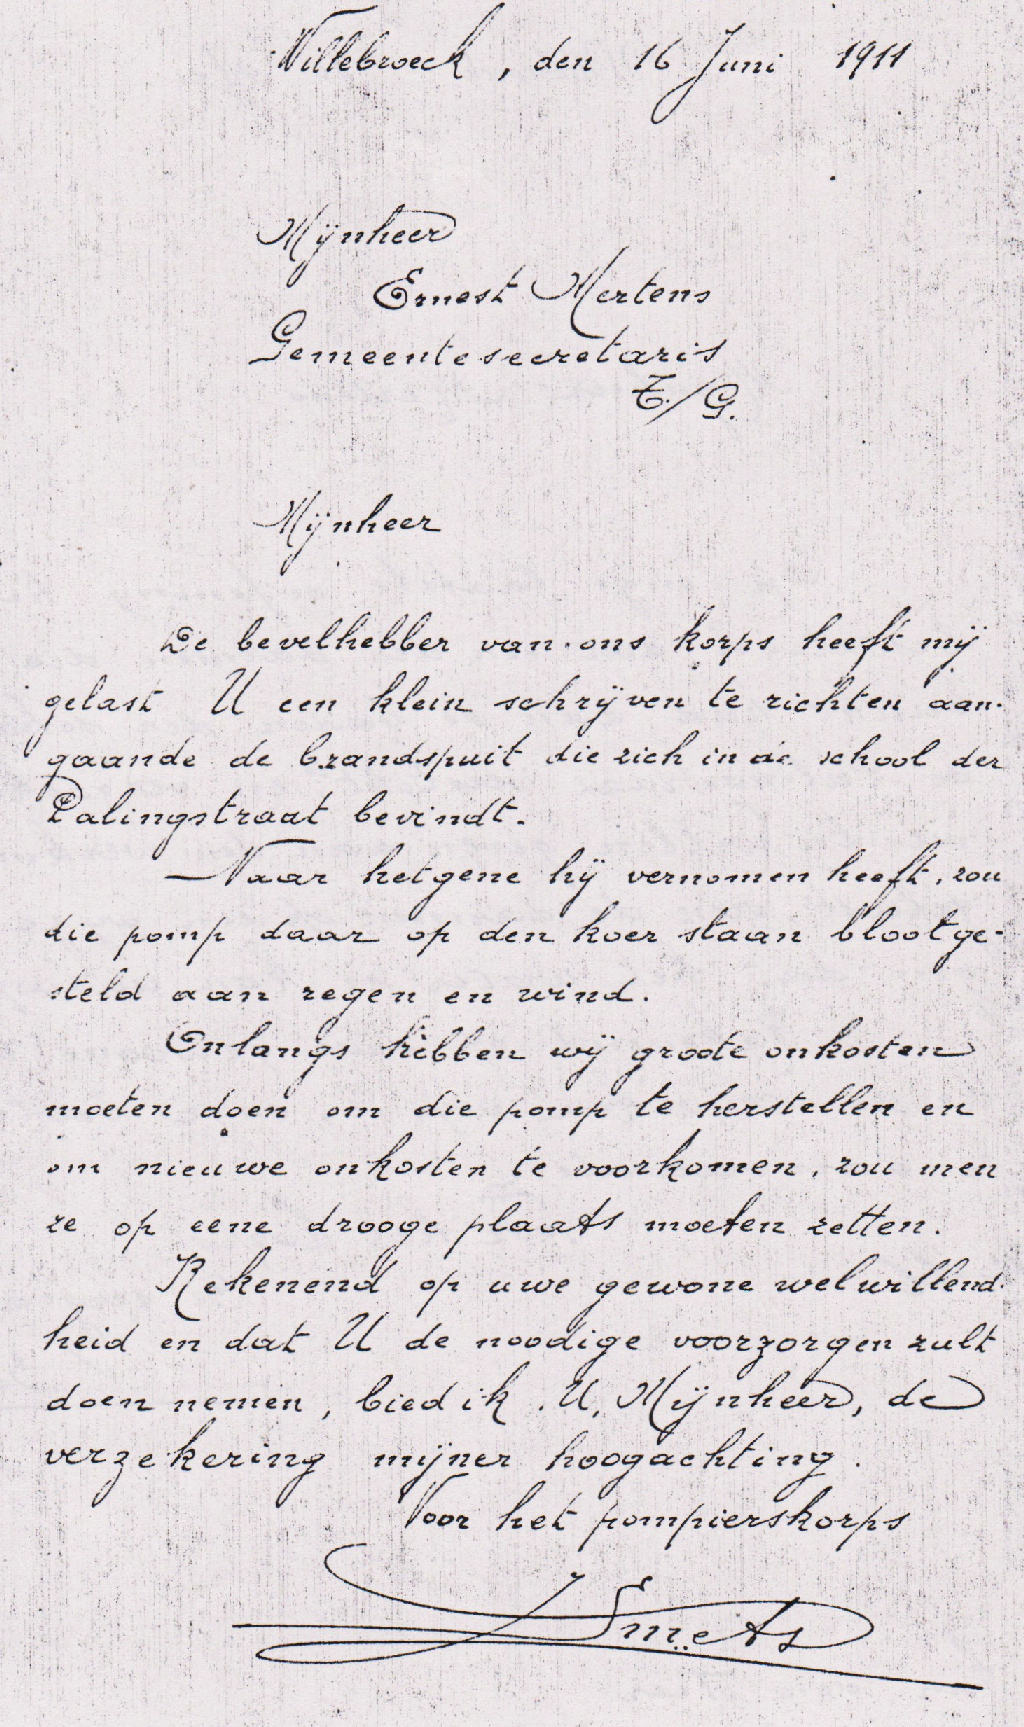 Willebroeck, den 16 Juni 1911
Mijnheer
Ernest Mertens
Gemeentesecretaris
T./G.
Mijnheer
De bevelhebber van ons korps heeft mij
gelast U een klein schrijven te richten aan-
gaande de brandspuit die zich in de school der
Palingstraat bevindt.
Naar hetgene hij vernomen heeft, zou
die pomp daar op den koer staan blootge-
steld aan regen en wind.
Onlangs hebben wij groote onkosten
moeten doen om die pomp te herstellen en
om nieuwe onkosten te voorkomen, zou men
ze op eene drooge plaats moeten zetten.
Rekenend op uwe gewone welwillend-
heid en dat U de noodige voorzorgen zult
doen nemen, bied ik U, Mijnheer, de
verzekering mijner hoogachting.
Voor het pompierskorps
J Smets